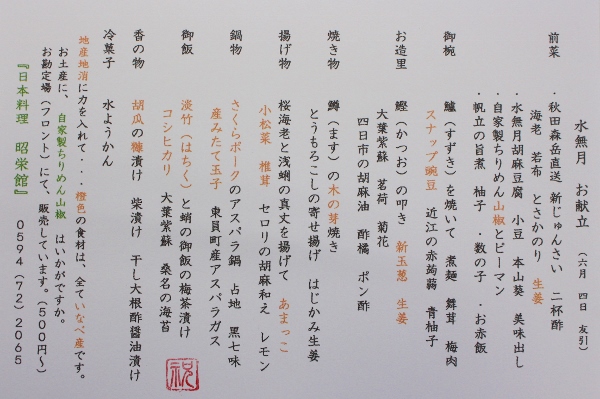 水無月　お献立　（六月　四日　友引）
前菜　・秋田森岳直送　新じゅんさい　二杯酢
海老　若布　とさかのり　生姜
・水無月胡麻豆腐　小豆　本山葵　美味出し
・自家製ちりめん山椒とピーマン
・帆立の旨煮　柚子　・数の子　・お赤飯
御椀　鱸（すずき）を焼いて　煮麺　舞茸　梅肉
スナップ豌豆　近江の赤蒟蒻　青柚子
お造里　鰹（かつお）の叩き　新玉葱　生姜
大葉紫蘇　茗荷　菊花
四日市の胡麻油　酢橘　ポン酢
焼き物　鱒（ます）の木の芽焼き
とうもろこしの寄せ揚げ　はじかみ生姜
揚げ物　桜海老と浅蜊の真丈を揚げて　あまっこ
小松菜　椎茸　セロリの胡麻和え　レモン
鍋物　さくらポークのアスパラ鍋　占地　黒七味
産みたて玉子　東員町産アスパラガス
御飯　淡竹（はちく）と蛸の御飯の梅茶漬け
コシヒカリ　大葉紫蘇　桑名の海苔
香の物　胡瓜の糠漬け　柴漬け　干し大根酢醤油漬け
冷菓子　水ようかん
祝
地産地消に力を入れて・・・橙色の食材は、全ていなべ産です。
お土産に、自家製ちりめん山椒　はいかがですか。
お勘定場（フロント）にて、販売しています。（５００円～）
『日本料理　昭栄館』　０５９４（７２）２０６５